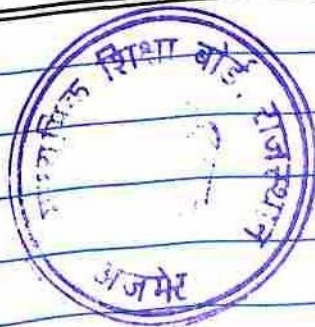 माध्यमिक शिक्षा बोर्ड, राजस्थान
अजमेर